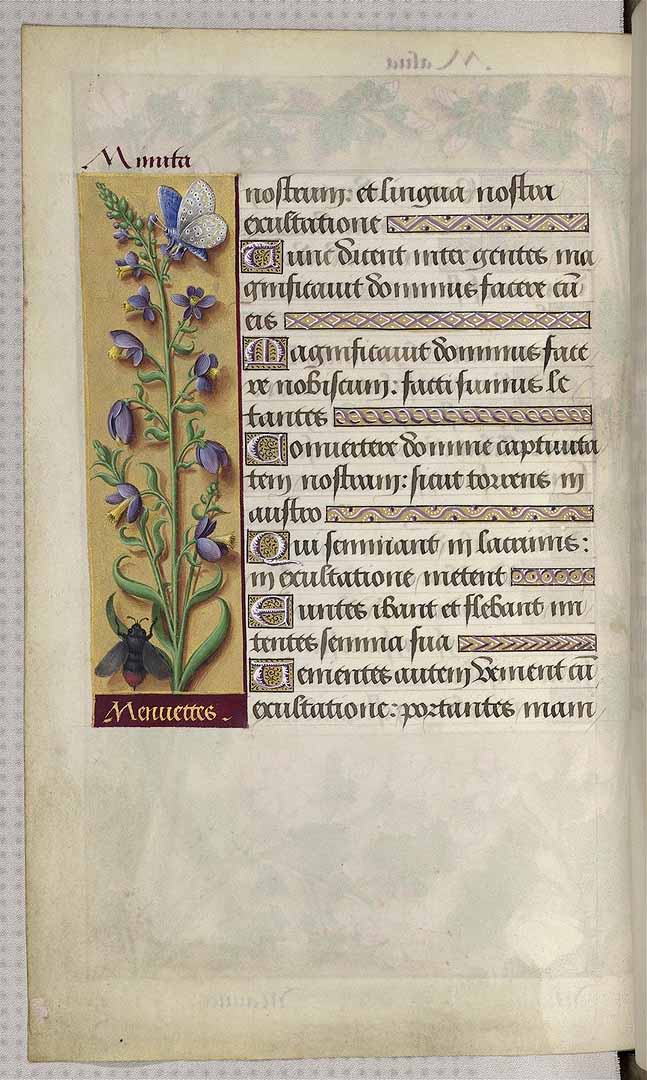 Minuta
nostrum: et lingua nostra
exultatione
Tunc dicent inter gentes ma
gnificavit dominus facere cū
eis
Magnificavit dominus face
re nobiscum: facti sumus le
tantes
Convertere domine captivita
tem nostram: sicut torrens in
austro
Qui seminant in lacrimis:
in exultatione metent
Euntes ibant et flebant mi
tentes semina sua
Venientes autem venient cū
exultatione: portantes mani
Menuettes.